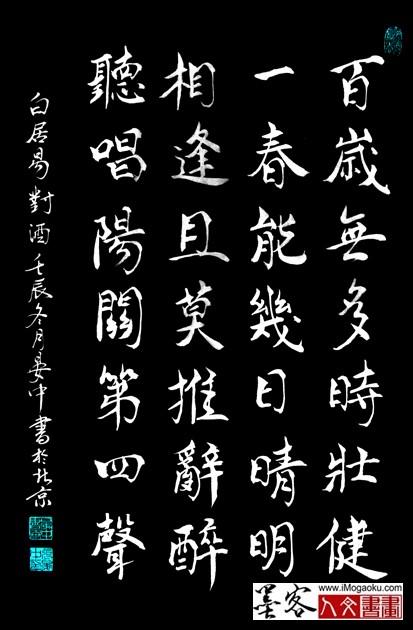 百歲無多時壯健
一春能幾日晴明
相逢且莫推辭醉
聽唱陽關第四聲
白居易對酒壬辰冬月晏中書於北京
www.iMogaoku.com
墨客人文書畫